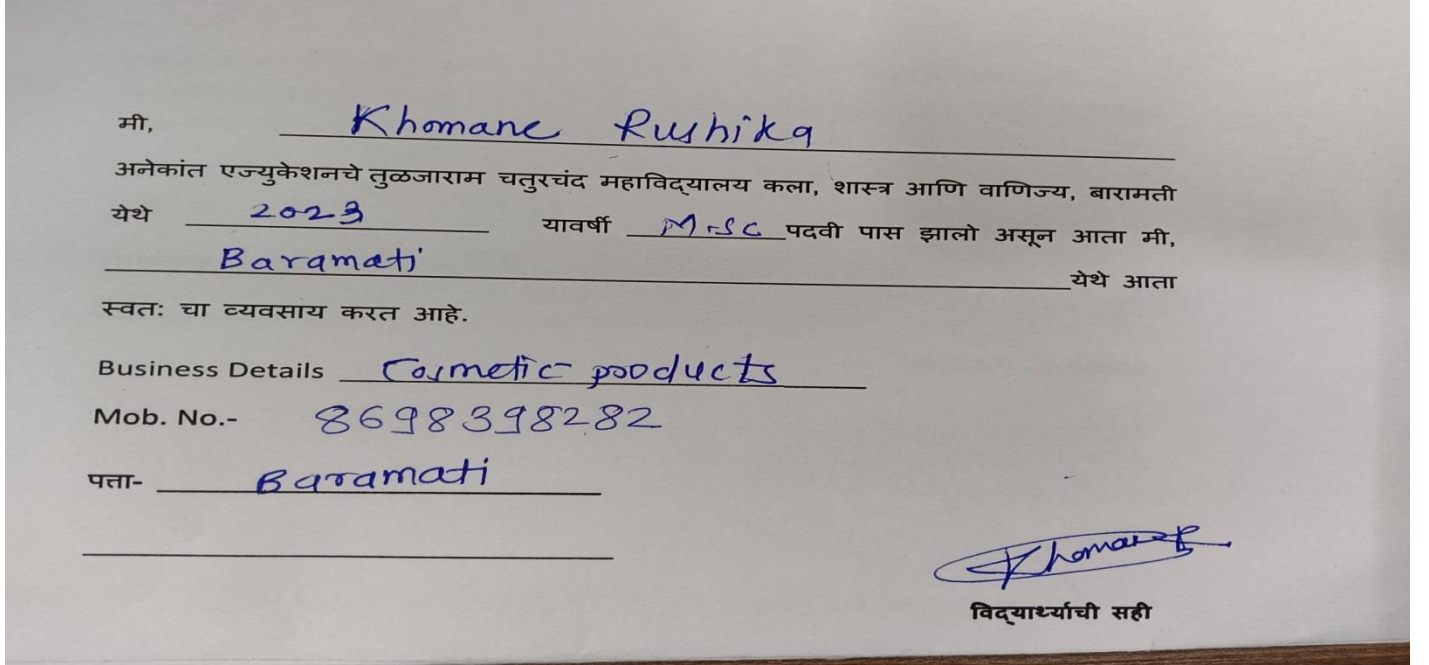 मी, Khomane Rushika
अनेकांत एज्युकेशनचे तुळजाराम चतुरचंद महाविद्यालय कला, शास्त्र आणि वाणिज्य, बारामती
येथे 2023 यावर्षी M.SC पदवी पास झालो असून आता मी,
Baramati येथे आता
स्वतः चा व्यवसाय करत आहे.
Business Details Cosmetic products
Mob. No.- 8698398282
पत्ता- Baramati
Khomane
विद्यार्थ्याची सही